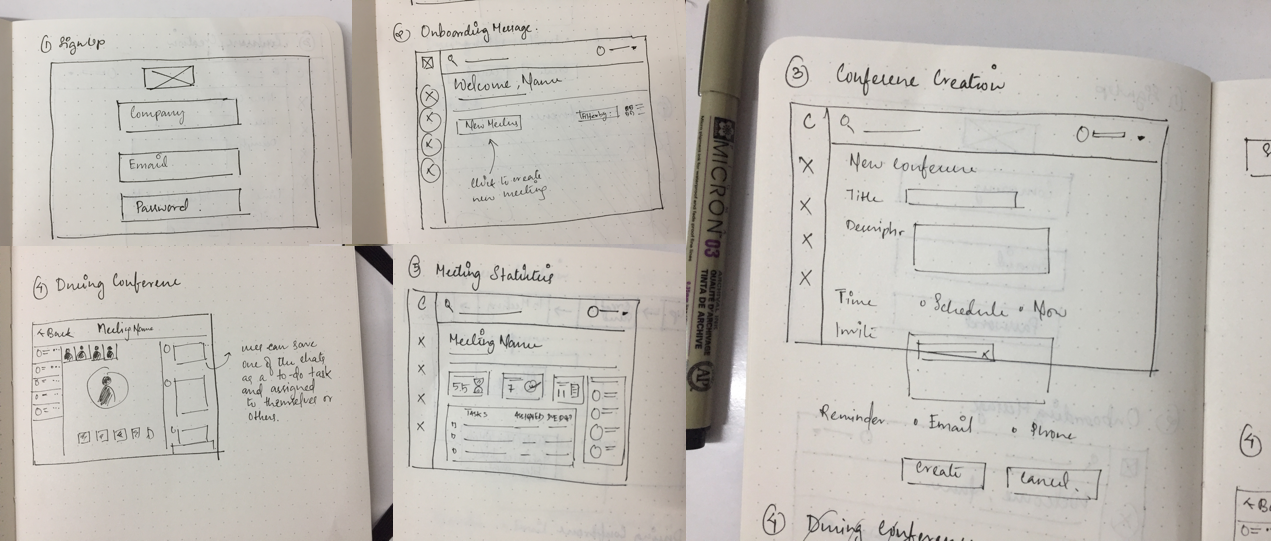 ① SignUp
Company
Email
Password
② Onboarding Message.
Welcome, Name
New Meeting
Filter by:
Click to create
new meeting
MICRON 03
ARCHIVAL INK
QUALITÉ D'ARCHIVAGE
TINTA DE ARCHIVE
AP
③ Conference Creation
C
New Conference
Title
Description
Time
Schedule
Now
Invite
x
Reminder
Email
Phone
Create
Cancel.
④ During Conference
④ During Conference
< Back
Meeting Name
user can save
one of the chats
as a to-do task
and assigned
to themselves or
others.
⑤ Meeting Statistics
C
Meeting Name
55
7
11
TASKS
ASSIGNED
④
< Ba